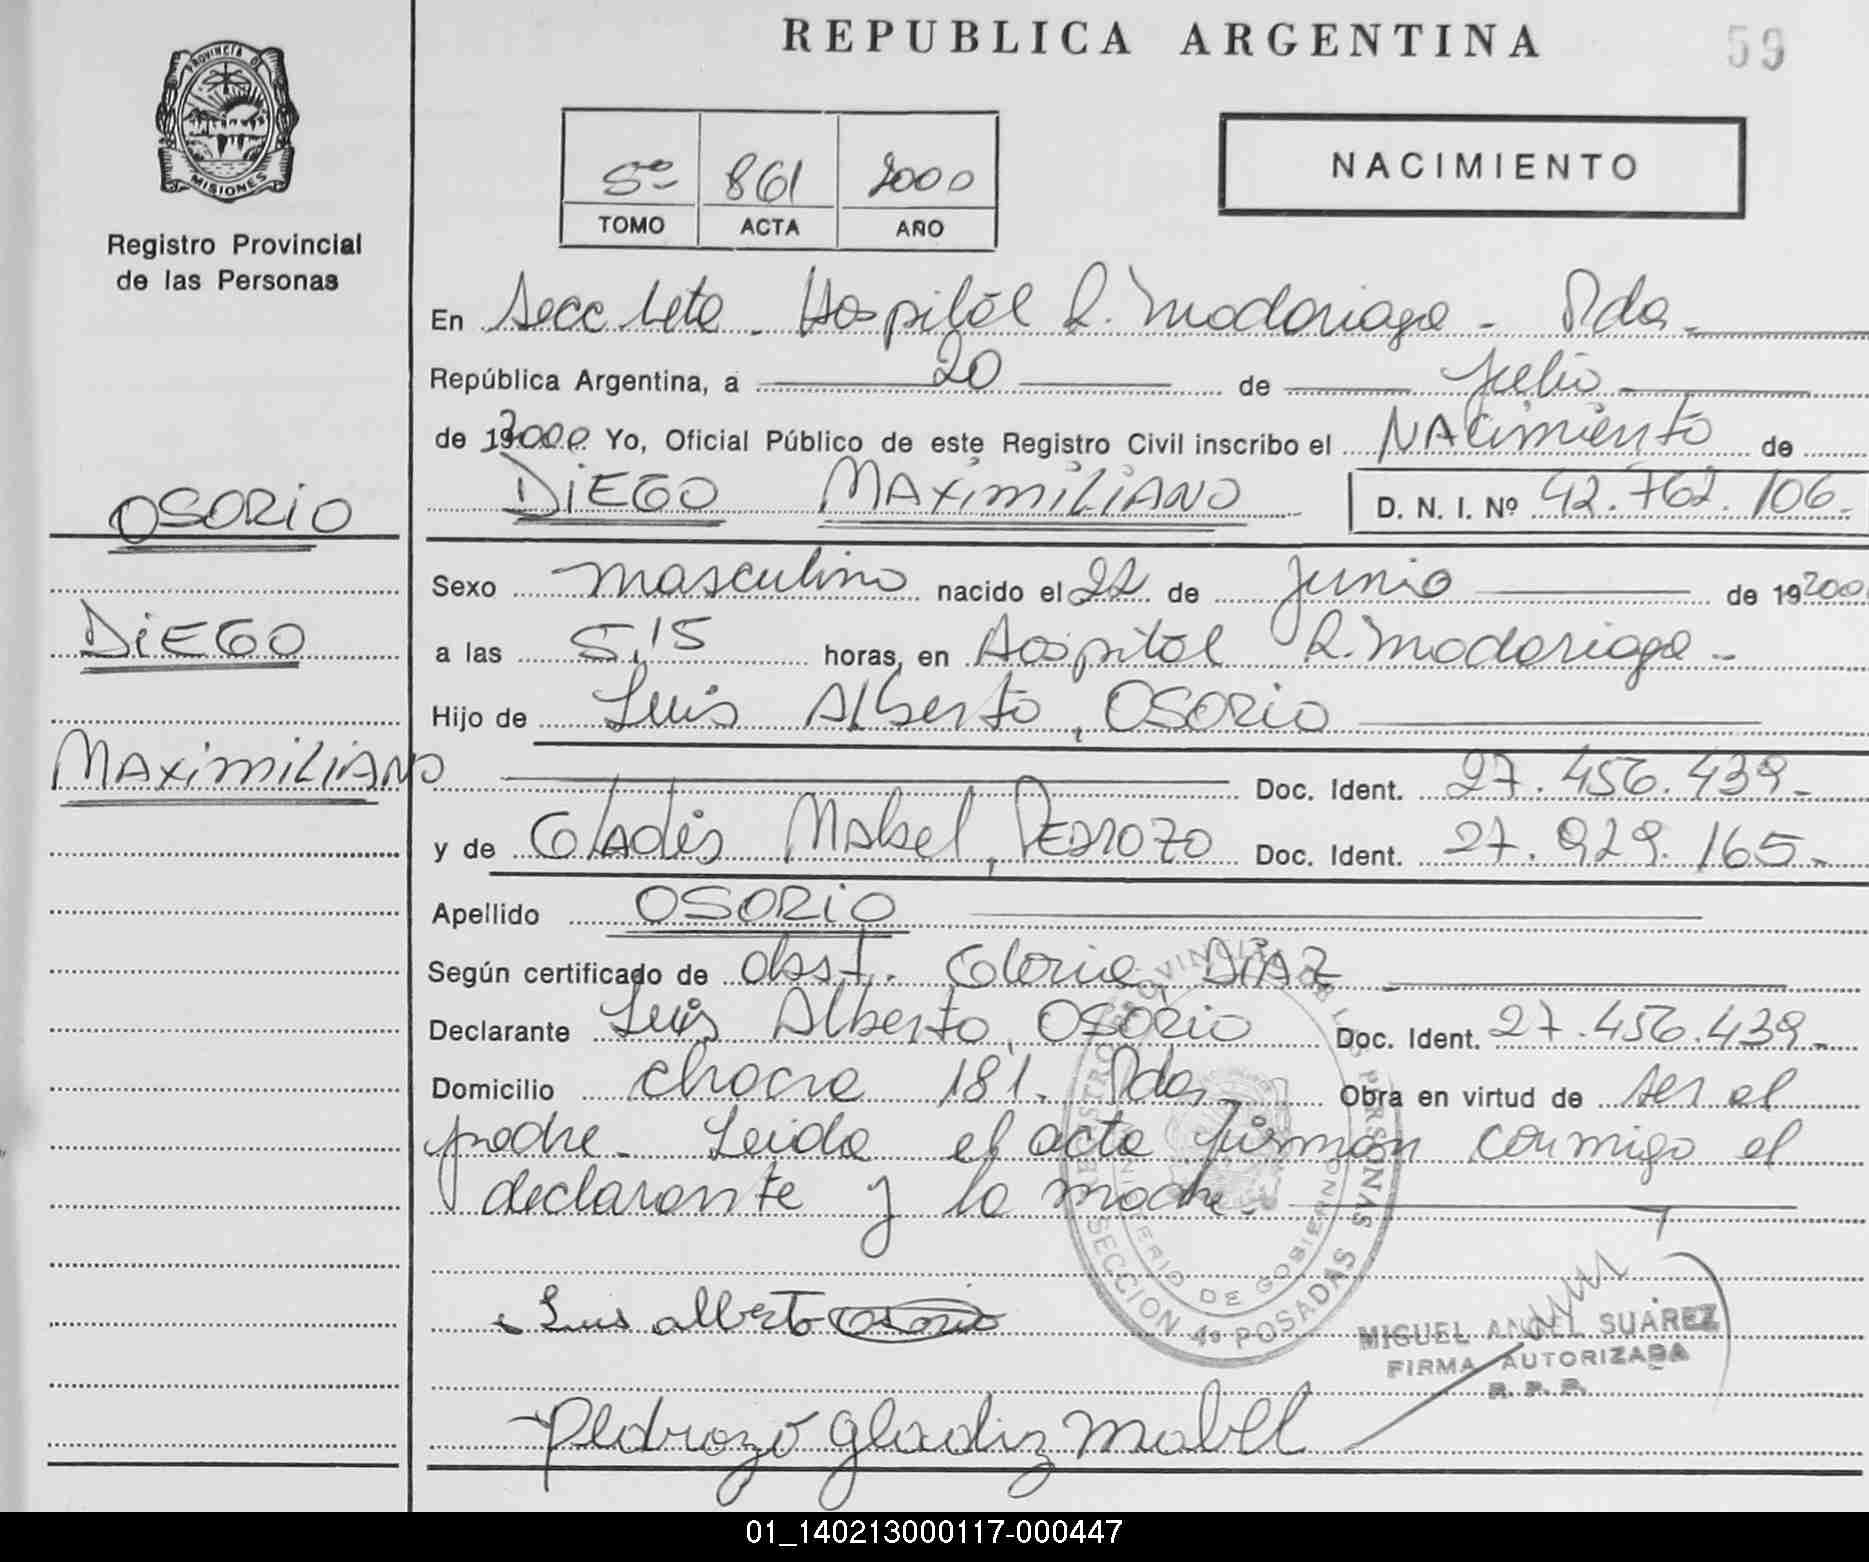 REPUBLICA ARGENTINA
59
PROVINCIA DE
MISIONES
Registro Provincial
de las Personas
5º 861 2000
TOMO ACTA AÑO
NACIMIENTO
En Secc 4ta - Hospital R. Madariaga - Pdas -
República Argentina, a 20 de Julio
de 192000 Yo, Oficial Público de este Registro Civil inscribo el NAcimiento de
DiEGO MAximiLiANO D. N. I. Nº 42.762.106-
OSORIO
DiEGO
MAximiLiANO
Sexo masculino nacido el 22 de Junio de 192000
a las 5,15 horas, en Hospital R. Madariaga -
Hijo de Luis Alberto, OSORIO
Doc. Ident. 27.456.439-
y de GlAdis Mabel, PEDROZO Doc. Ident. 27.929.165-
Apellido OSORiO
Según certificado de obst. Gloria DiAZ
Declarante Luis Alberto, OSORIO Doc. Ident. 27.456.439-
Domicilio chacra 181. Pdas. Obra en virtud de ser el
padre. Leida el acta firman conmigo el
declarante y la madre.
REGISTRO PROVINCIAL DE LAS PERSONAS
MINISTERIO DE GOBIERNO
SECCION 4ª POSADAS
Luis alberto osorio
MIGUEL ANGEL SUAREZ
FIRMA AUTORIZADA
R. P. P.
Pedrozo gladiz mabel
01_140213000117-000447